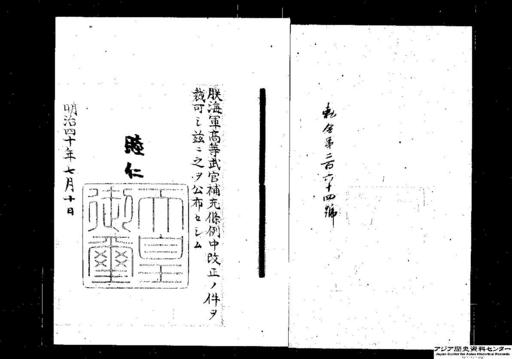 勅令第二百六十四號
朕海軍高等武官補充條例中改正ノ件ヲ
裁可シ茲ニ之ヲ公布セシム
睦仁
天皇御璽
明治四十年七月十日
アジア歴史資料センター
Japan Center for Asian Historical Records